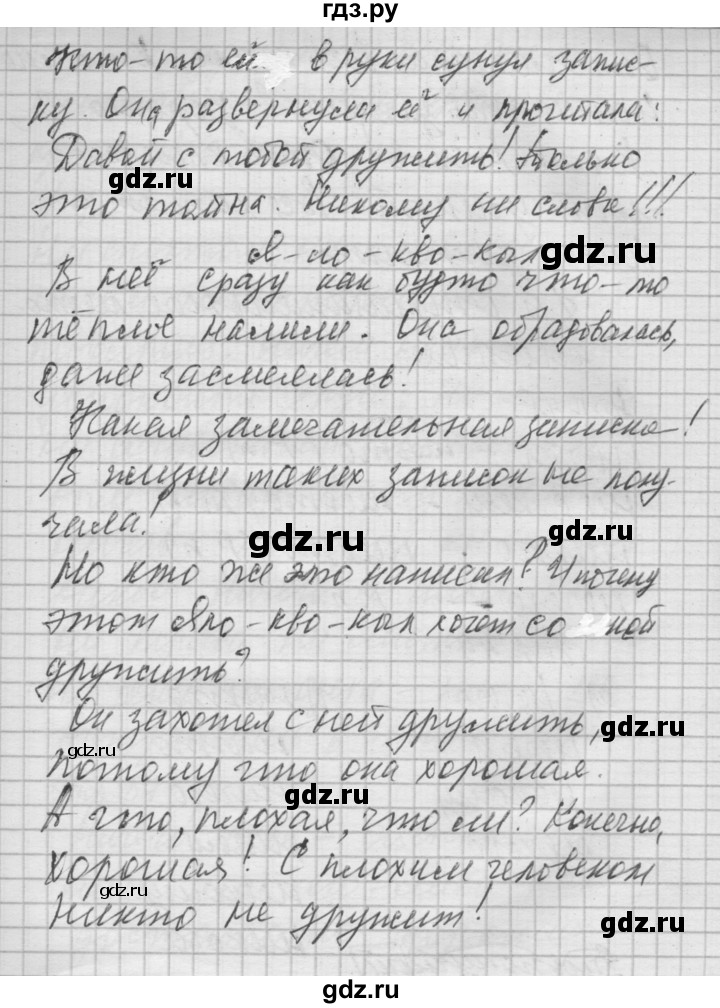 гдз.ру
Кто-то ей в руки сунул запис-
ку. Она развернула её и прочитала:
Давай с тобой дружить! Только
gdz.ru
это тайна. Никому ни слова!!!
Я-ло-кво-кыл
gdz.ru
В неё сразу как будто что-то
тёплое налили. Она обрадовалась,
даже засмеялась!
Какая замечательная записка!
В жизни таких записок не полу-
чала!
gdz.ru
Но кто же это написал? И почему
gdz.ru
этот Яло-кво-кыл хочет со мной
дружить?
Он захотел с ней дружить,
gdz.ru
gdz.ru
потому что она хорошая.
gdz.ru
А что, плохая, что ли? Конечно,
хорошая! С плохим человеком
gdz.ru
никто не дружит!
gdz.ru
gdz.ru